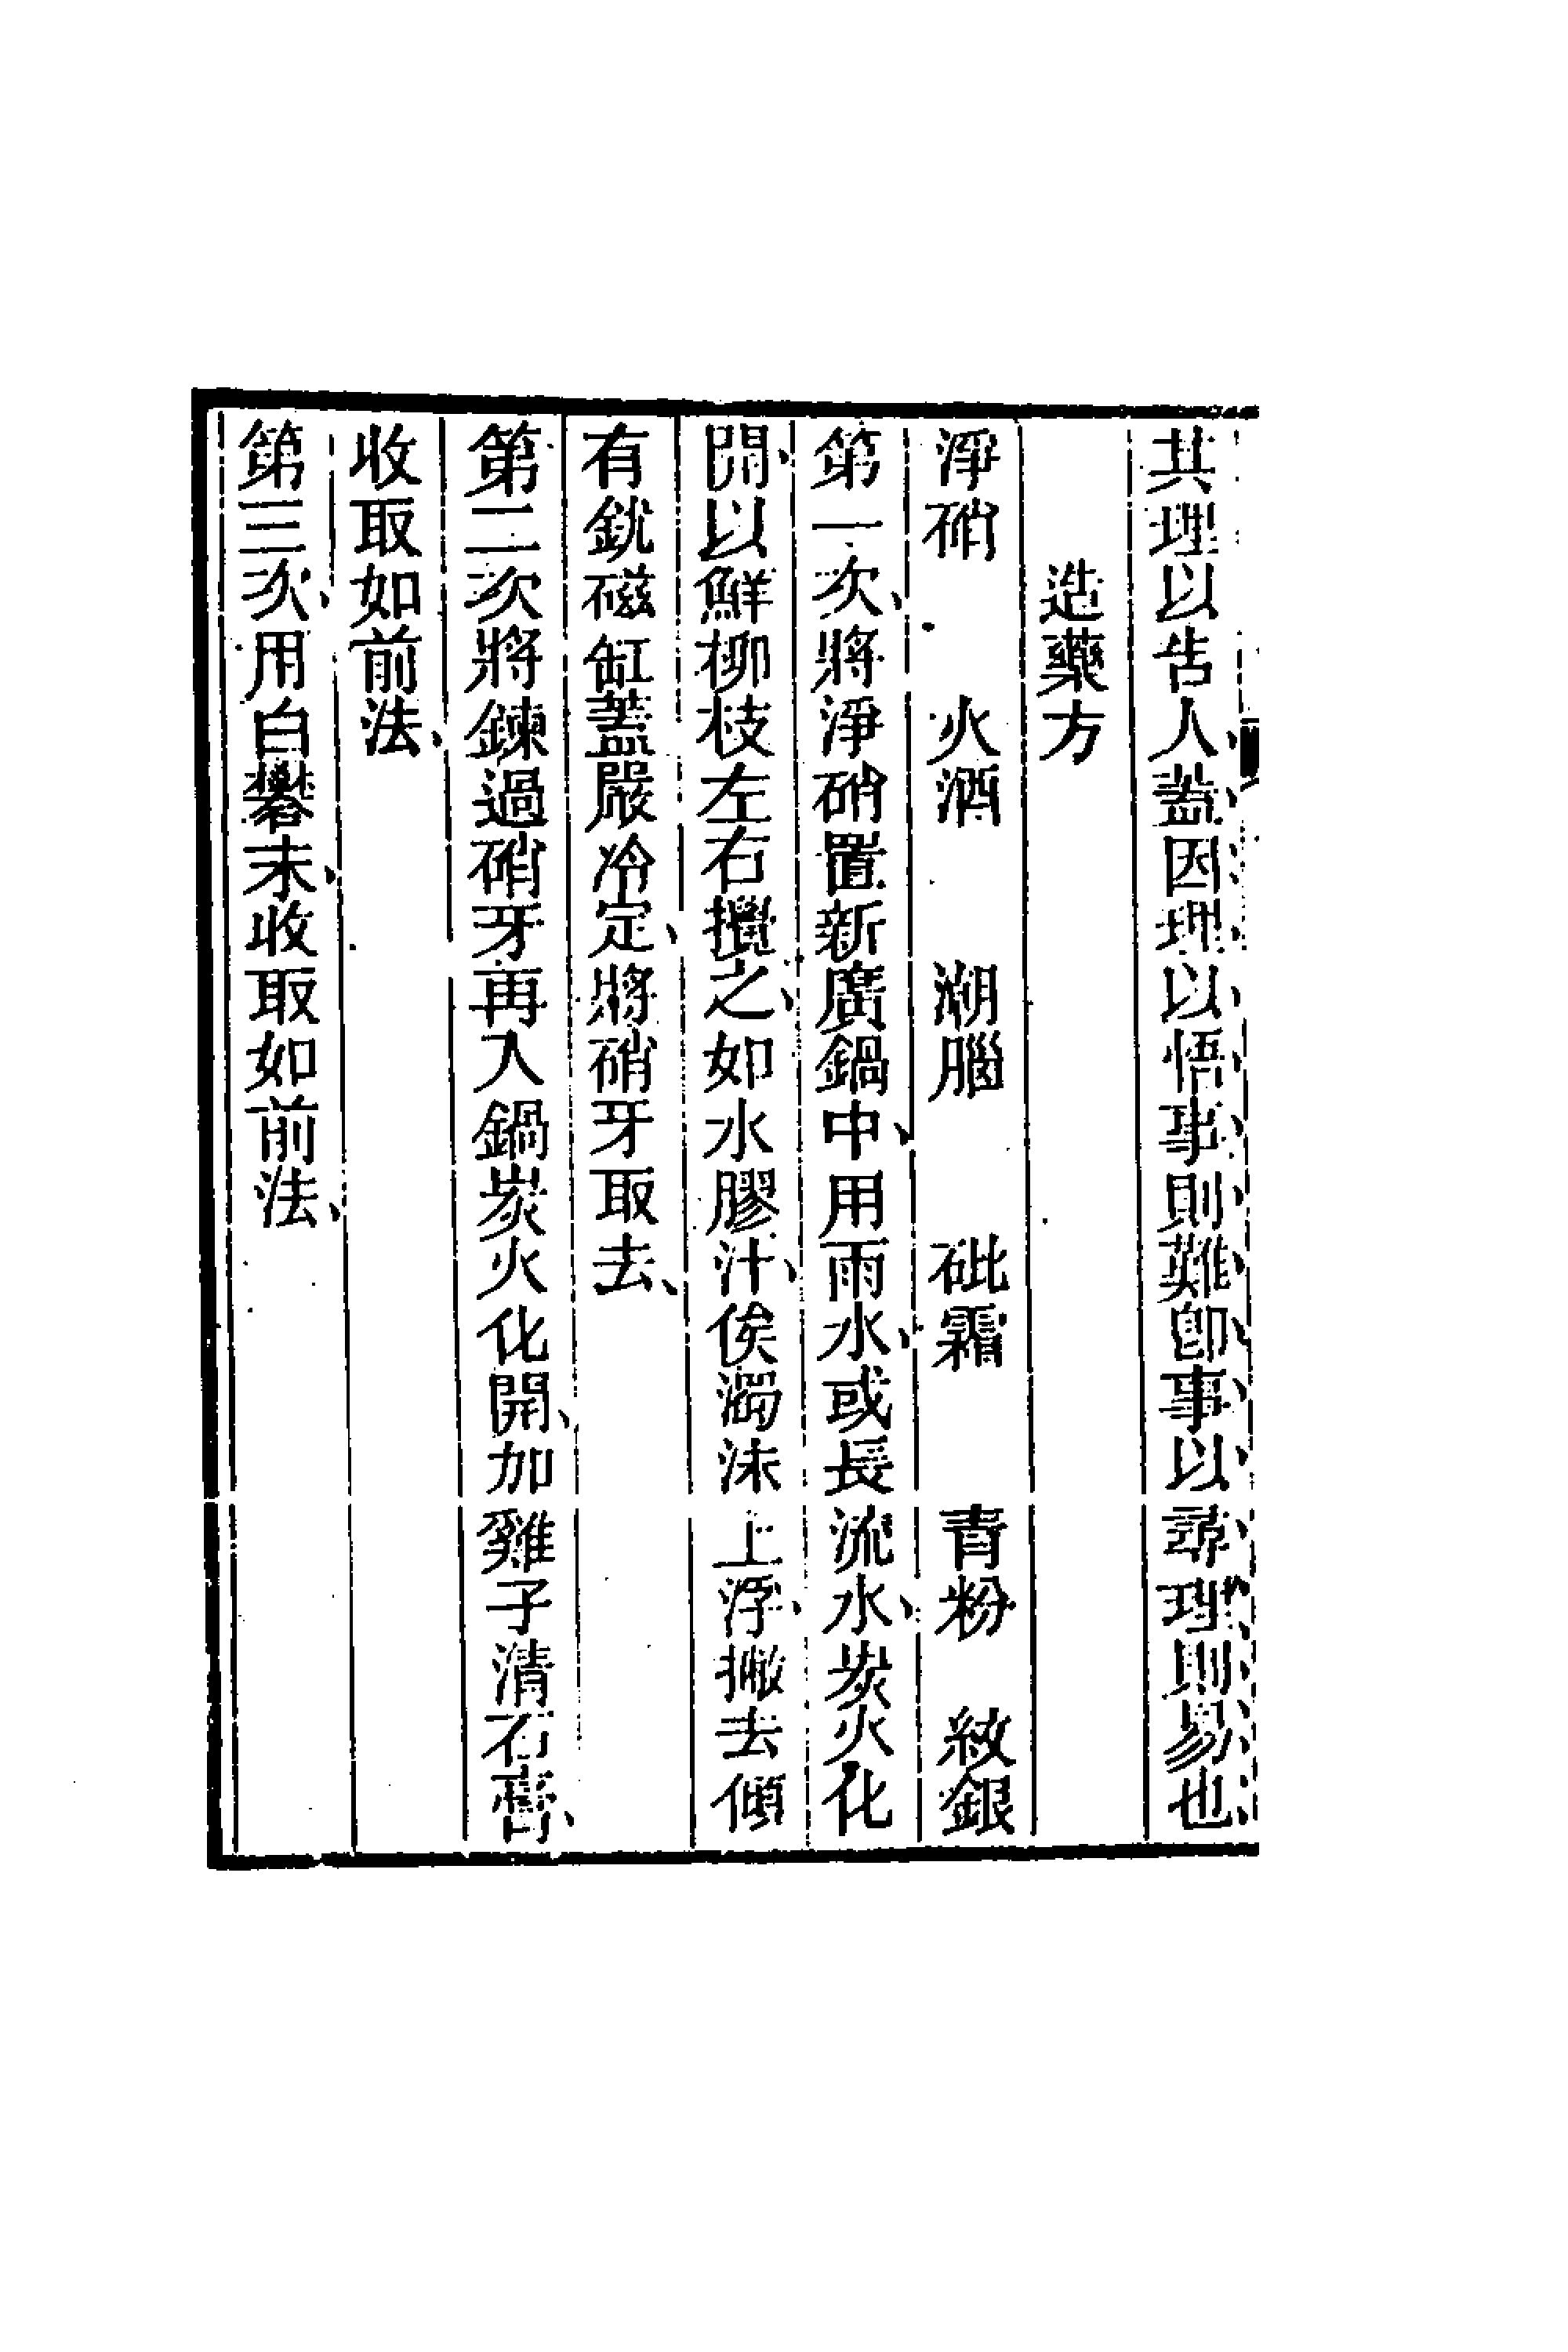 其理以告人蓋因理以悟事則難卽事以尋理則易也
造藥方
淨硝 火酒 潮腦 砒霜 青粉 紋銀
第一次、將淨硝置新廣鍋中、用雨水、或長流水、炭火化
開、以鮮柳枝左右攪之、如水膠汁、俟濁沫上浮、撇去傾
有銧磁缸蓋嚴冷定、將硝牙取去、
第二次將鍊過硝牙再入鍋炭火化開、加雞子清石膏、
收取如前法、
第三次、用白礬末、收取如前法、